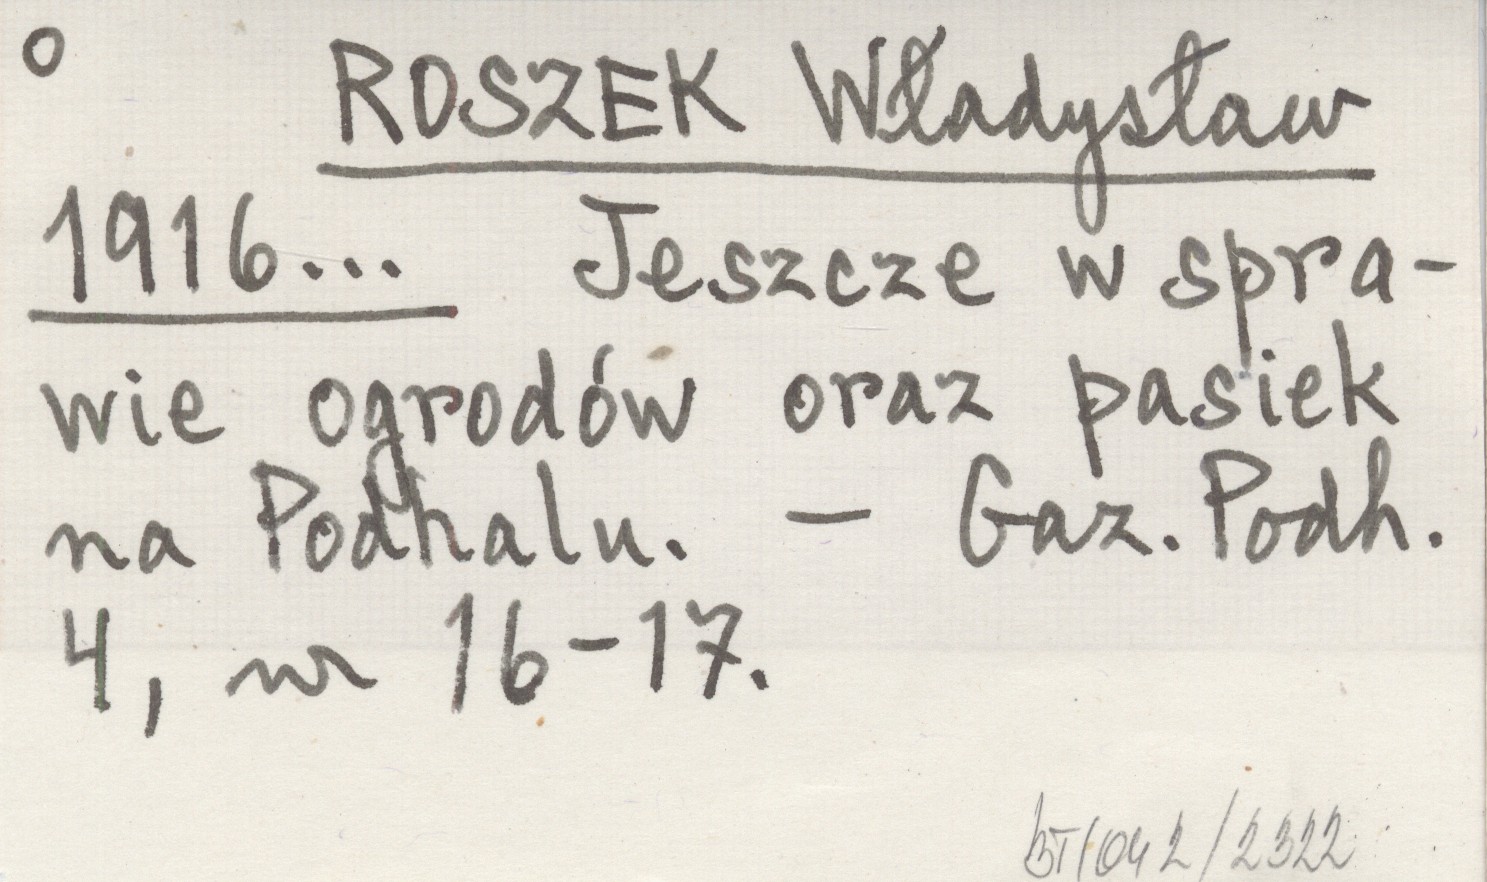 o ROSZEK Władysław
1916... Jeszcze w spra-
wie ogrodów oraz pasiek
na Podhalu. - Gaz. Podh.
4, nr 16-17.
BT/042/2322